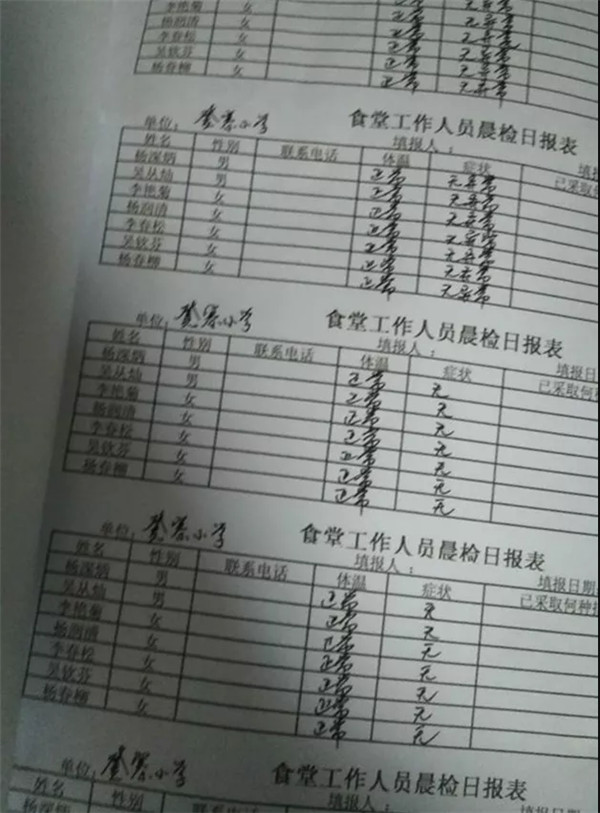 李艳菊 女 正常 无异常
杨润清 女 正常 无异常
李春松 女 正常 无异常
吴钦芬 女 正常 无异常
杨春柳 女 正常 无异常
食堂工作人员晨检日报表
单位： 小学 填报人：
姓名 性别 联系电话 体温 症状
杨深炳 男 正常 无异常
吴丛灿 男 正常 无异常
李艳菊 女 正常 无异常
杨润清 女 正常 无异常
李春松 女 正常 无异常
吴钦芬 女 正常 无异常
杨春柳 女 正常 无异常
食堂工作人员晨检日报表
单位： 小学 填报人： 填报日
姓名 性别 联系电话 体温 症状 已采取何种
杨深炳 男 正常 无
吴丛灿 男 正常 无
李艳菊 女 正常 无
杨润清 女 正常 无
李春松 女 正常 无
吴钦芬 女 正常 无
杨春柳 女 正常 无
食堂工作人员晨检日报表
单位： 小学 填报人： 填报日期
姓名 性别 联系电话 体温 症状 已采取何种
杨深炳 男 正常 无
吴丛灿 男 正常 无
李艳菊 女 正常 无
杨润清 女 正常 无
李春松 女 正常 无
吴钦芬 女 正常 无
杨春柳 女 正常 无
食堂工作人员晨检日报表
单位： 小学 填报人：
姓名 性别 联系电话 体温
杨深炳